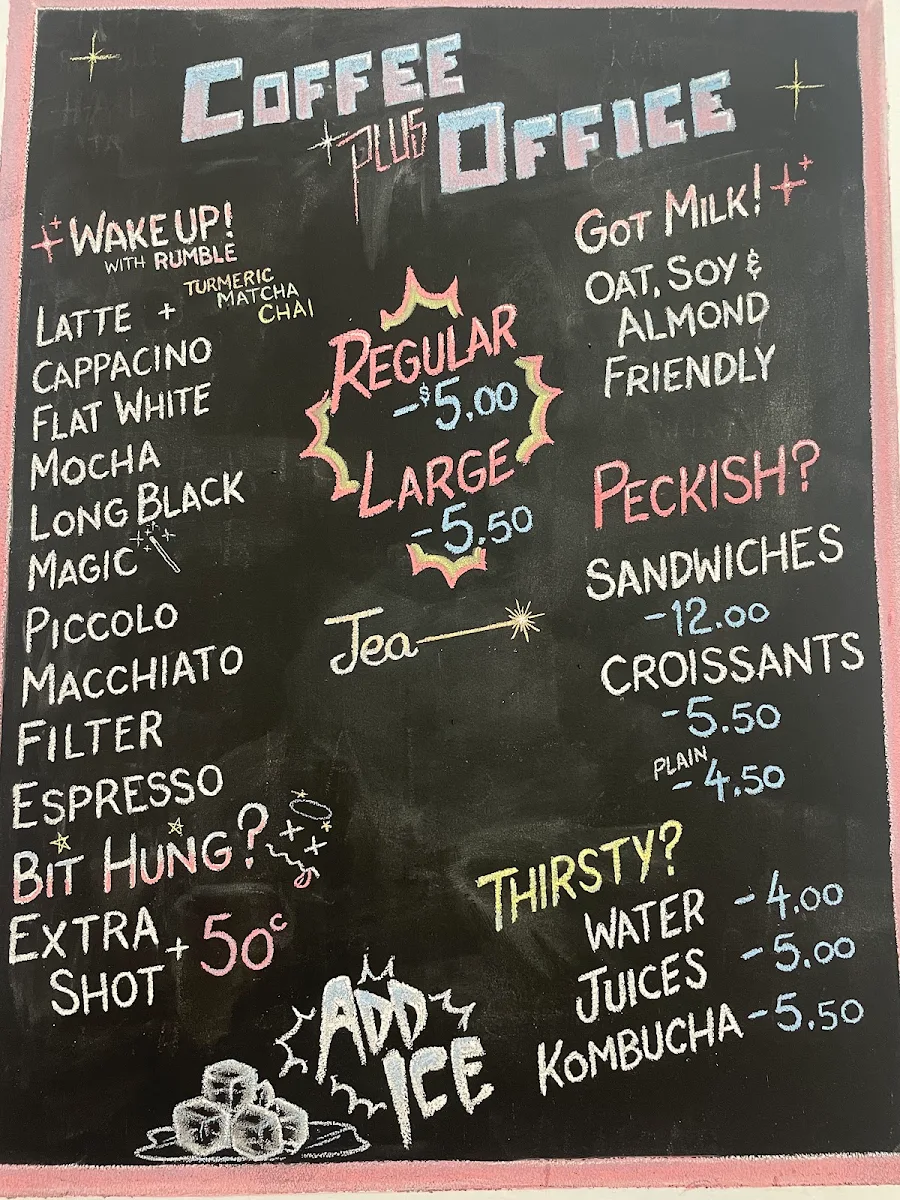 COFFEE
PLUS OFFICE
WAKE UP!
WITH RUMBLE
LATTE + TURMERIC
MATCHA
CHAI
CAPPACINO
FLAT WHITE
MOCHA
LONG BLACK
MAGIC
PICCOLO
MACCHIATO
FILTER
ESPRESSO
BIT HUNG?
EXTRA
SHOT + 50c
REGULAR
-$5.00
LARGE
-5.50
Tea
ADD
ICE
GOT MILK!
OAT, SOY &
ALMOND
FRIENDLY
PECKISH?
SANDWICHES
-12.00
CROISSANTS
-5.50
PLAIN
-4.50
THIRSTY?
WATER -4.00
JUICES -5.00
KOMBUCHA -5.50